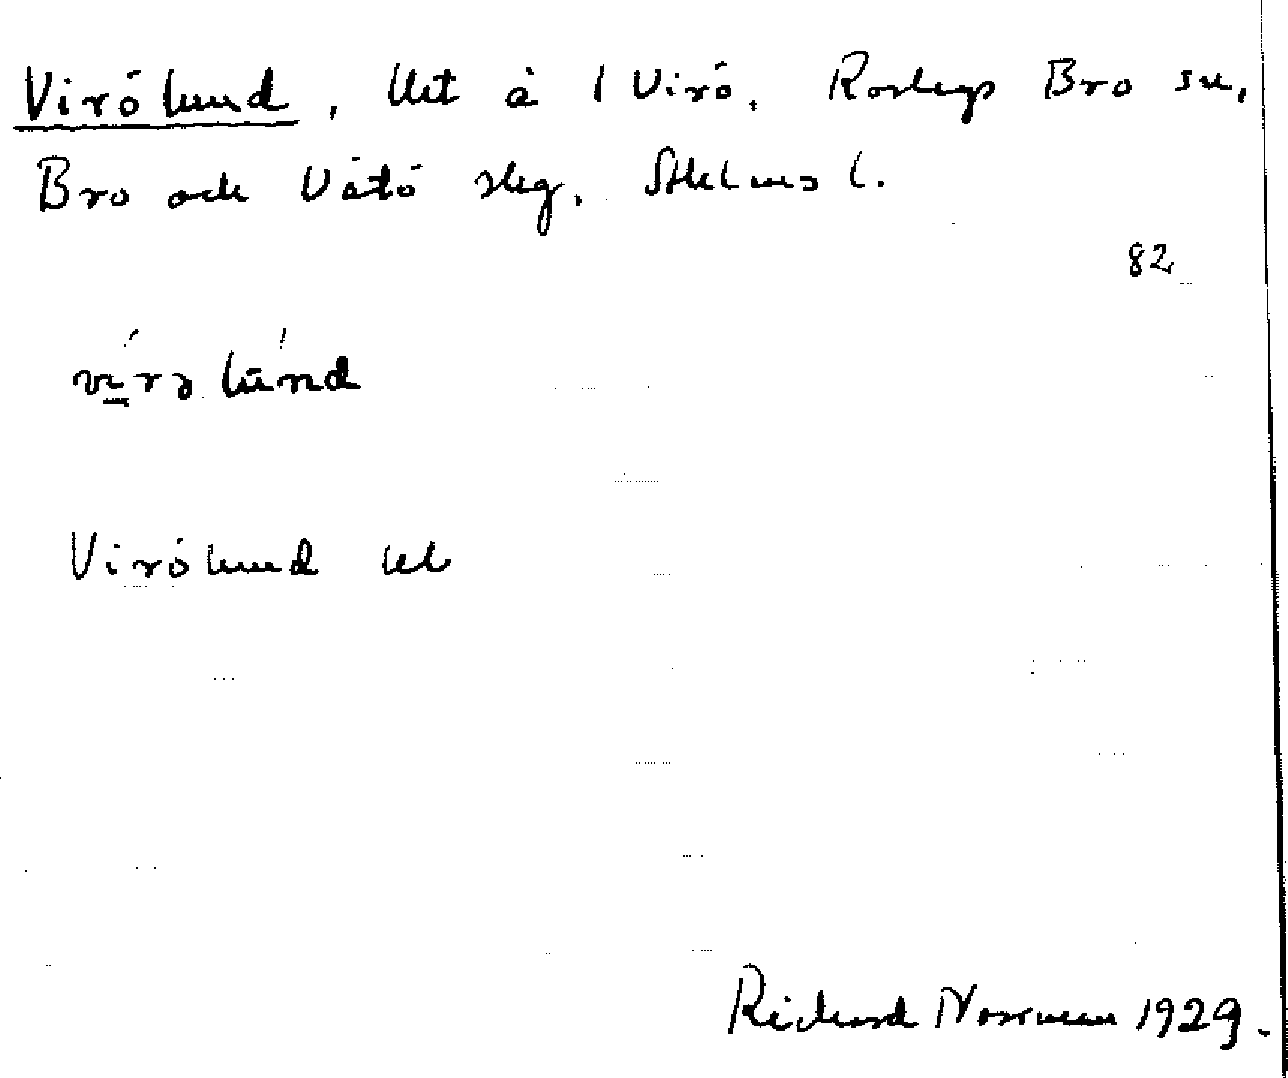 Virölund, lht å 1 Virö. Roslags Bro sn,
Bro och Vätö skg. Sthlms l.
82
Virölund
Richard Norrman 1929.